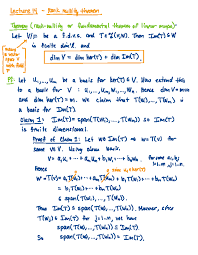 Lecture 14 - Rank nullity theorem
Theorem (rank-nullity or fundamental theorem of linear maps)
Let V/F be a f.d.v.s. and T ∈ L(V,W). Then Im(T) ≤ W
is finite dim'l and
dim V = dim ker(T) + dim Im(T).
Pf: Let u₁,...,uₘ be a basis for ker(T) ≤ V. Now extend this
to a basis for V : u₁,...,uₘ,w₁,...,wₙ. hence dim V = m+n
and dim ker(T) = m. We claim that T(w₁),...,T(wₙ) is
a basis for Im(T).
Claim 1: Im(T) = span(T(w₁),...,T(wₙ)) so Im(T)
is finite dimensional.
Proof of Claim 1: Let w ∈ Im(T) ⇒ w = T(v) for
some v ∈ V. Using above basis,
V = a₁u₁ + ... + aₘuₘ + b₁w₁ + ... + bₙwₙ
Hence
= b₁T(w₁) + ... + bₙT(wₙ)
∈ span(T(w₁),...,T(wₙ)).
Thus Im(T) ≤ span(T(w₁),...,T(wₙ)). Moreover, since
T(wⱼ) ∈ Im(T) for j=1...n, we have
span(T(w₁),...,T(wₙ)) ≤ Im(T).
So span(T(w₁),...,T(wₙ)) = Im(T).